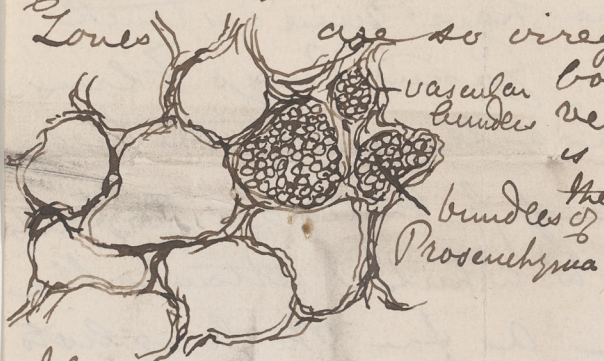 Zones are so
vascular
bundles
ve
is
the
bundles of
Prosenchyma